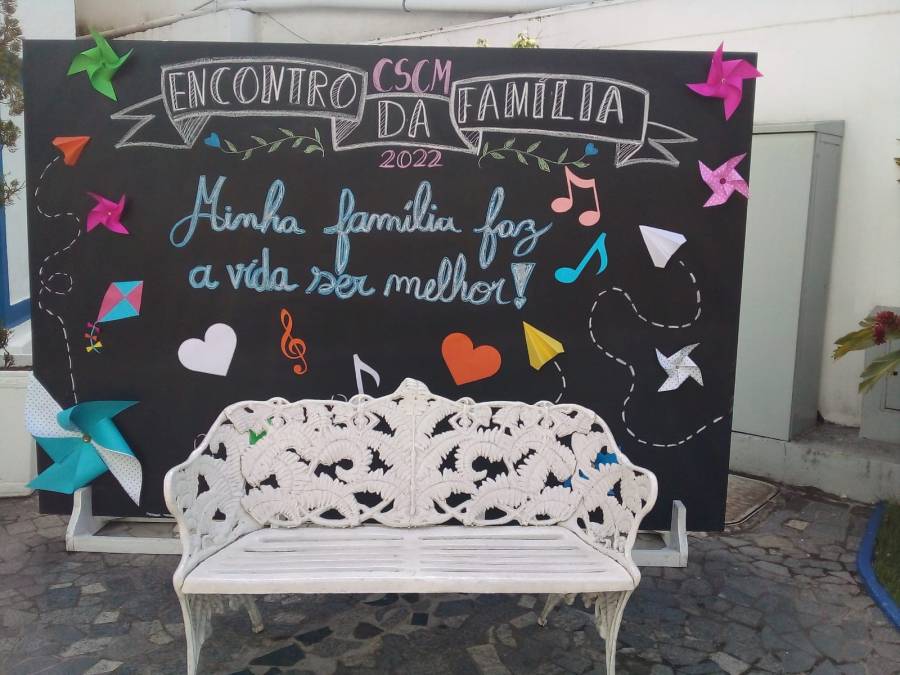 ENCONTRO CSCM FAMÍLIA
DA
2022
Minha família faz
a vida ser melhor!